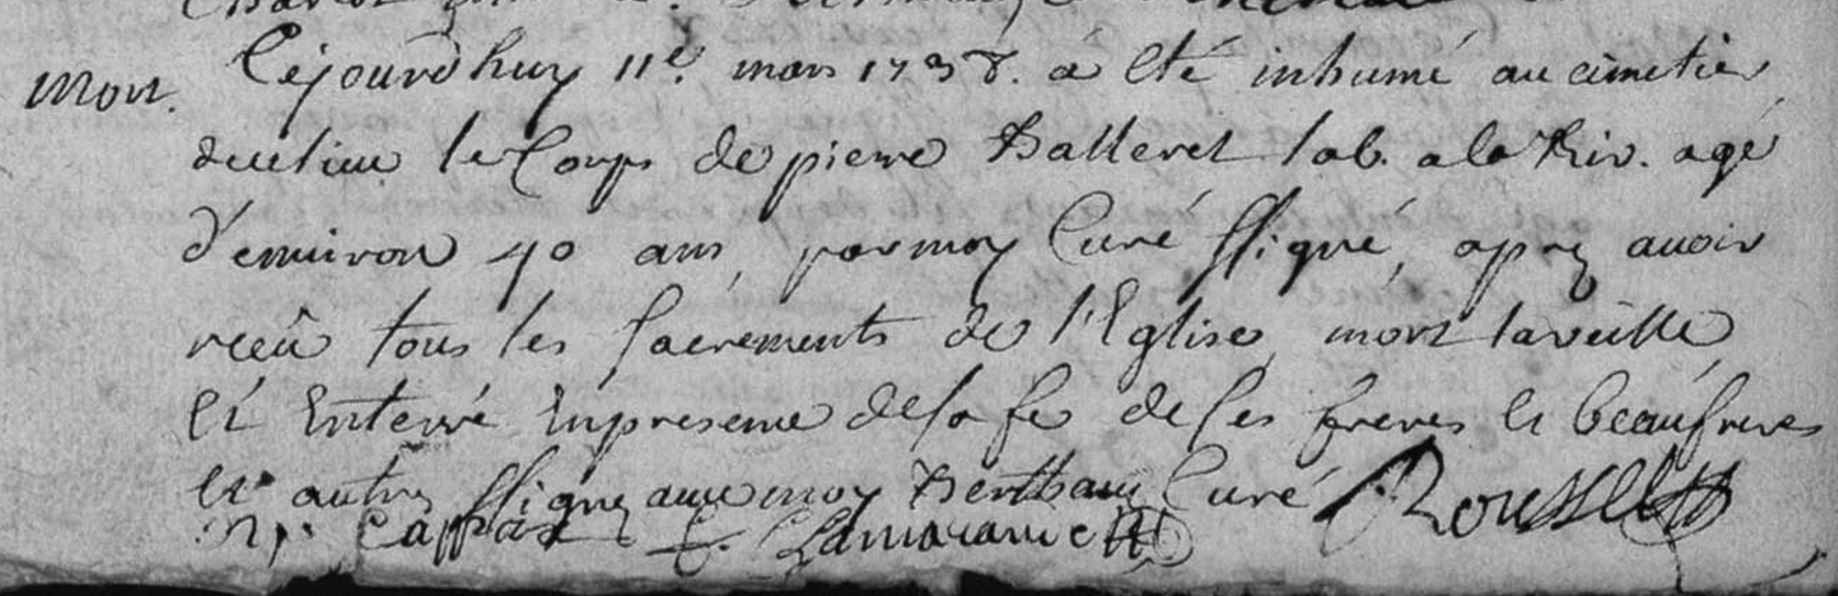 mort. Cejourd'huy 11e. mars 1738. a été inhumé au cimetier
dece lieu le Corps de pierre Balleret lab. a la Riv. agé
d'environ 40 ans, par moy Curé ssigné, aprez avoir
receû tous les sacrements de l'Eglise, mort la veille
et Enterré En presence de sa fe de ses freres et beaufreres
et autres ssignez avec moy Berthaux Curé Rousselet
Cappas Lamaranch